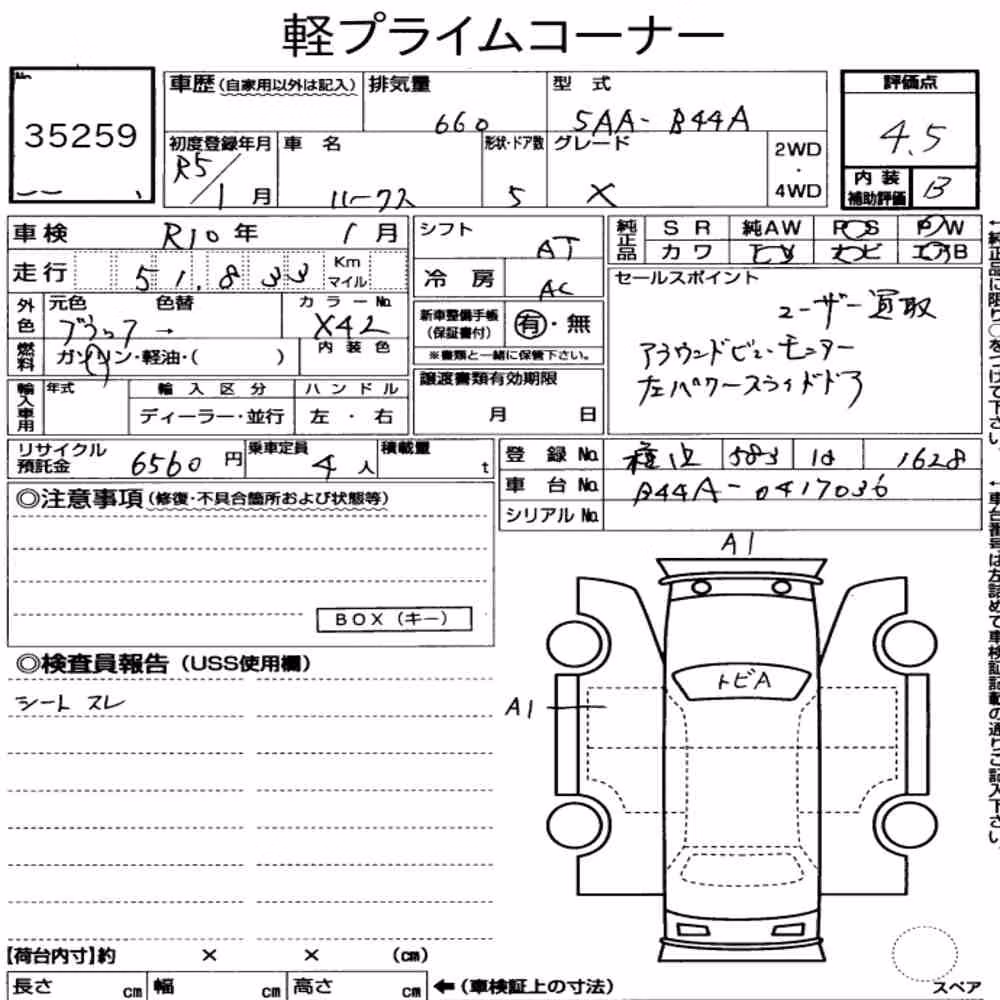 軽プライムコーナー
No.
35259
車歴(自家用以外は記入)
排気量
660
型 式
5AA-B44A
評価点
4.5
内装
補助評価
B
初度登録年月
R5/1月
車 名
ルークス
形状・ドア数
5
グレード
X
2WD
・
4WD
車検
R10年 1月
走行
51,833
Km
マイル
外色
元色
ブラック
色替
→
カラーNo.
X42
燃料
ガソリン・軽油・( )
内装色
輸入車用
年式
輸入区分
ハンドル
ディーラー・並行
左・右
シフト
AT
冷 房
AC
新車整備手帳
(保証書付)
有・無
※書類と一緒に保管下さい。
譲渡書類有効期限
月 日
純正品
SR 純AW PS PW
カワ TV ナビ エアB
セールスポイント
ユーザー買取
アラウンドビューモニター
左パワースライドドア
←純正品に限り○をつけて下さい。
リサイクル
預託金
6560円
乗車定員
4人
積載量
t
登録No.
583
1628
車台No.
B44A-0417036
シリアルNo.
←車台番号は左詰めで車検証記載の通りご記入下さい。
◎注意事項(修復・不具合箇所および状態等)
BOX(キー)
◎検査員報告(USS使用欄)
シート スレ
A1
トビA
A1
【荷台内寸】約 × × (cm)
長さ cm 幅 cm 高さ cm ←(車検証上の寸法)
スペア